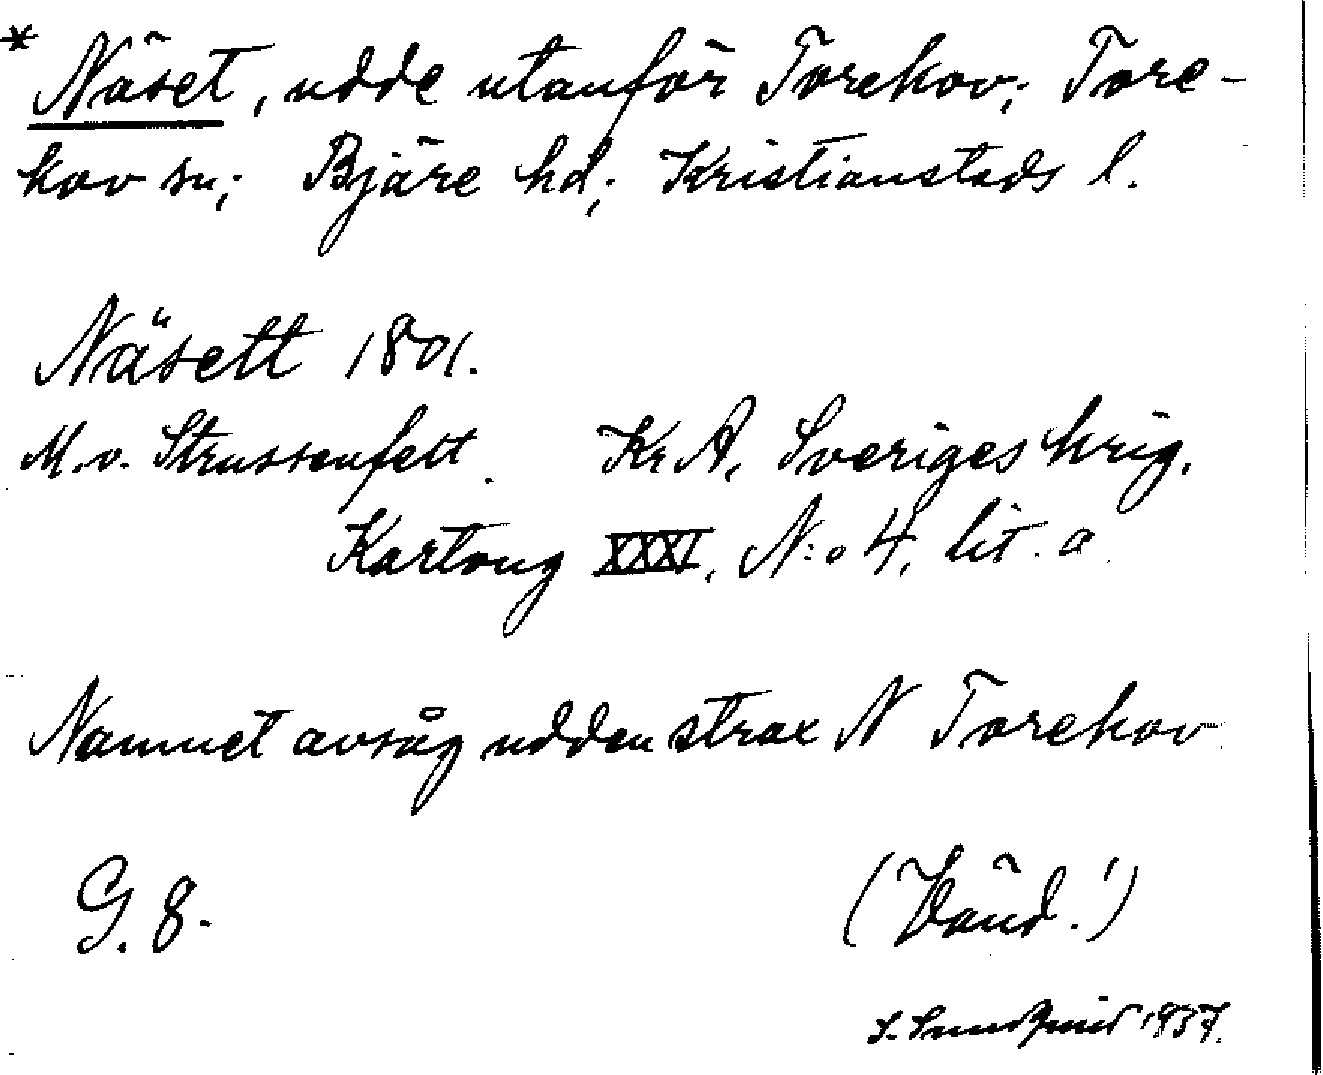 * Näset, udde utanför Torekov; Tore-
kov sn; Bjäre hd; Kristianstads l.
Näsett 1801.
M. v. Strussenfelt. Kr. A. Sveriges krig.
Kartong XXXI, N:o 4, lit. a
Namnet avsåg udden strax N Torekov
G. 8. (Vänd!)
1937.